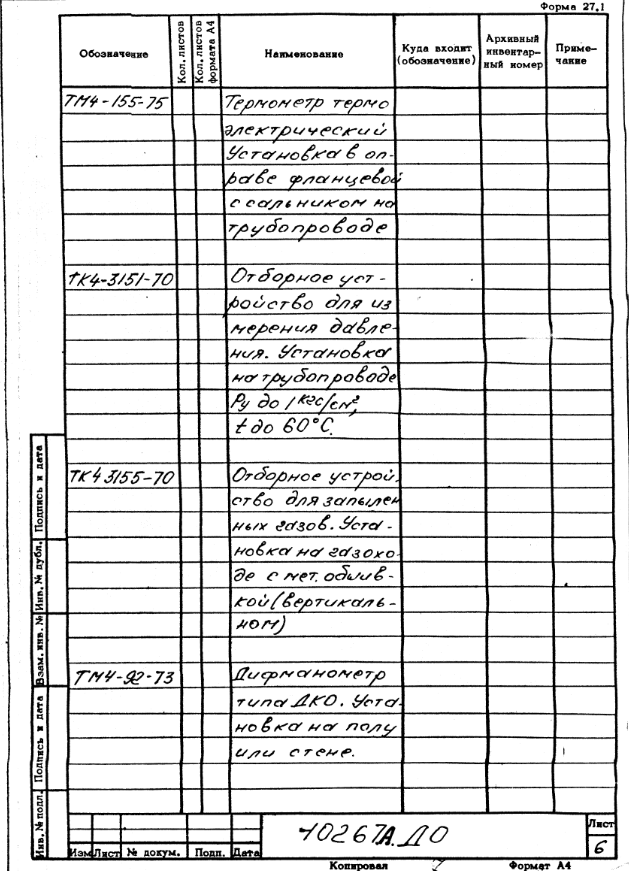 Форма 27.1
Обозначение Кол. листов Кол. листов формата А4 Наименование Куда входит (обозначение) Архивный инвентар-ный номер Приме-чание
ТМ4-155-75 Термометр термо
электрический
Установка в оп-
раве фланцевой
с сальником на
трубопроводе
ТК4-3151-70 Отборное уст-
ройство для из
мерения давле-
ния. Установка
на трубопроводе
Ру до 1 кгс/см²,
t до 60°С.
ТК4 3155-70 Отборное устрой.
ство для запылен
ных газов. Уста-
новка на газохо-
де с мет. обшив-
кой (вертикаль-
ном)
ТМ4-92-73 Дифманометр
типа ДКО. Уста-
новка на полу
или стене.
Инв. № подл. Подпись и дата Взам. инв. № Инв. № дубл. Подпись и дата
10267А.ДО
Лист
6
Изм Лист № докум. Подп. Дата
Копировал Формат А4